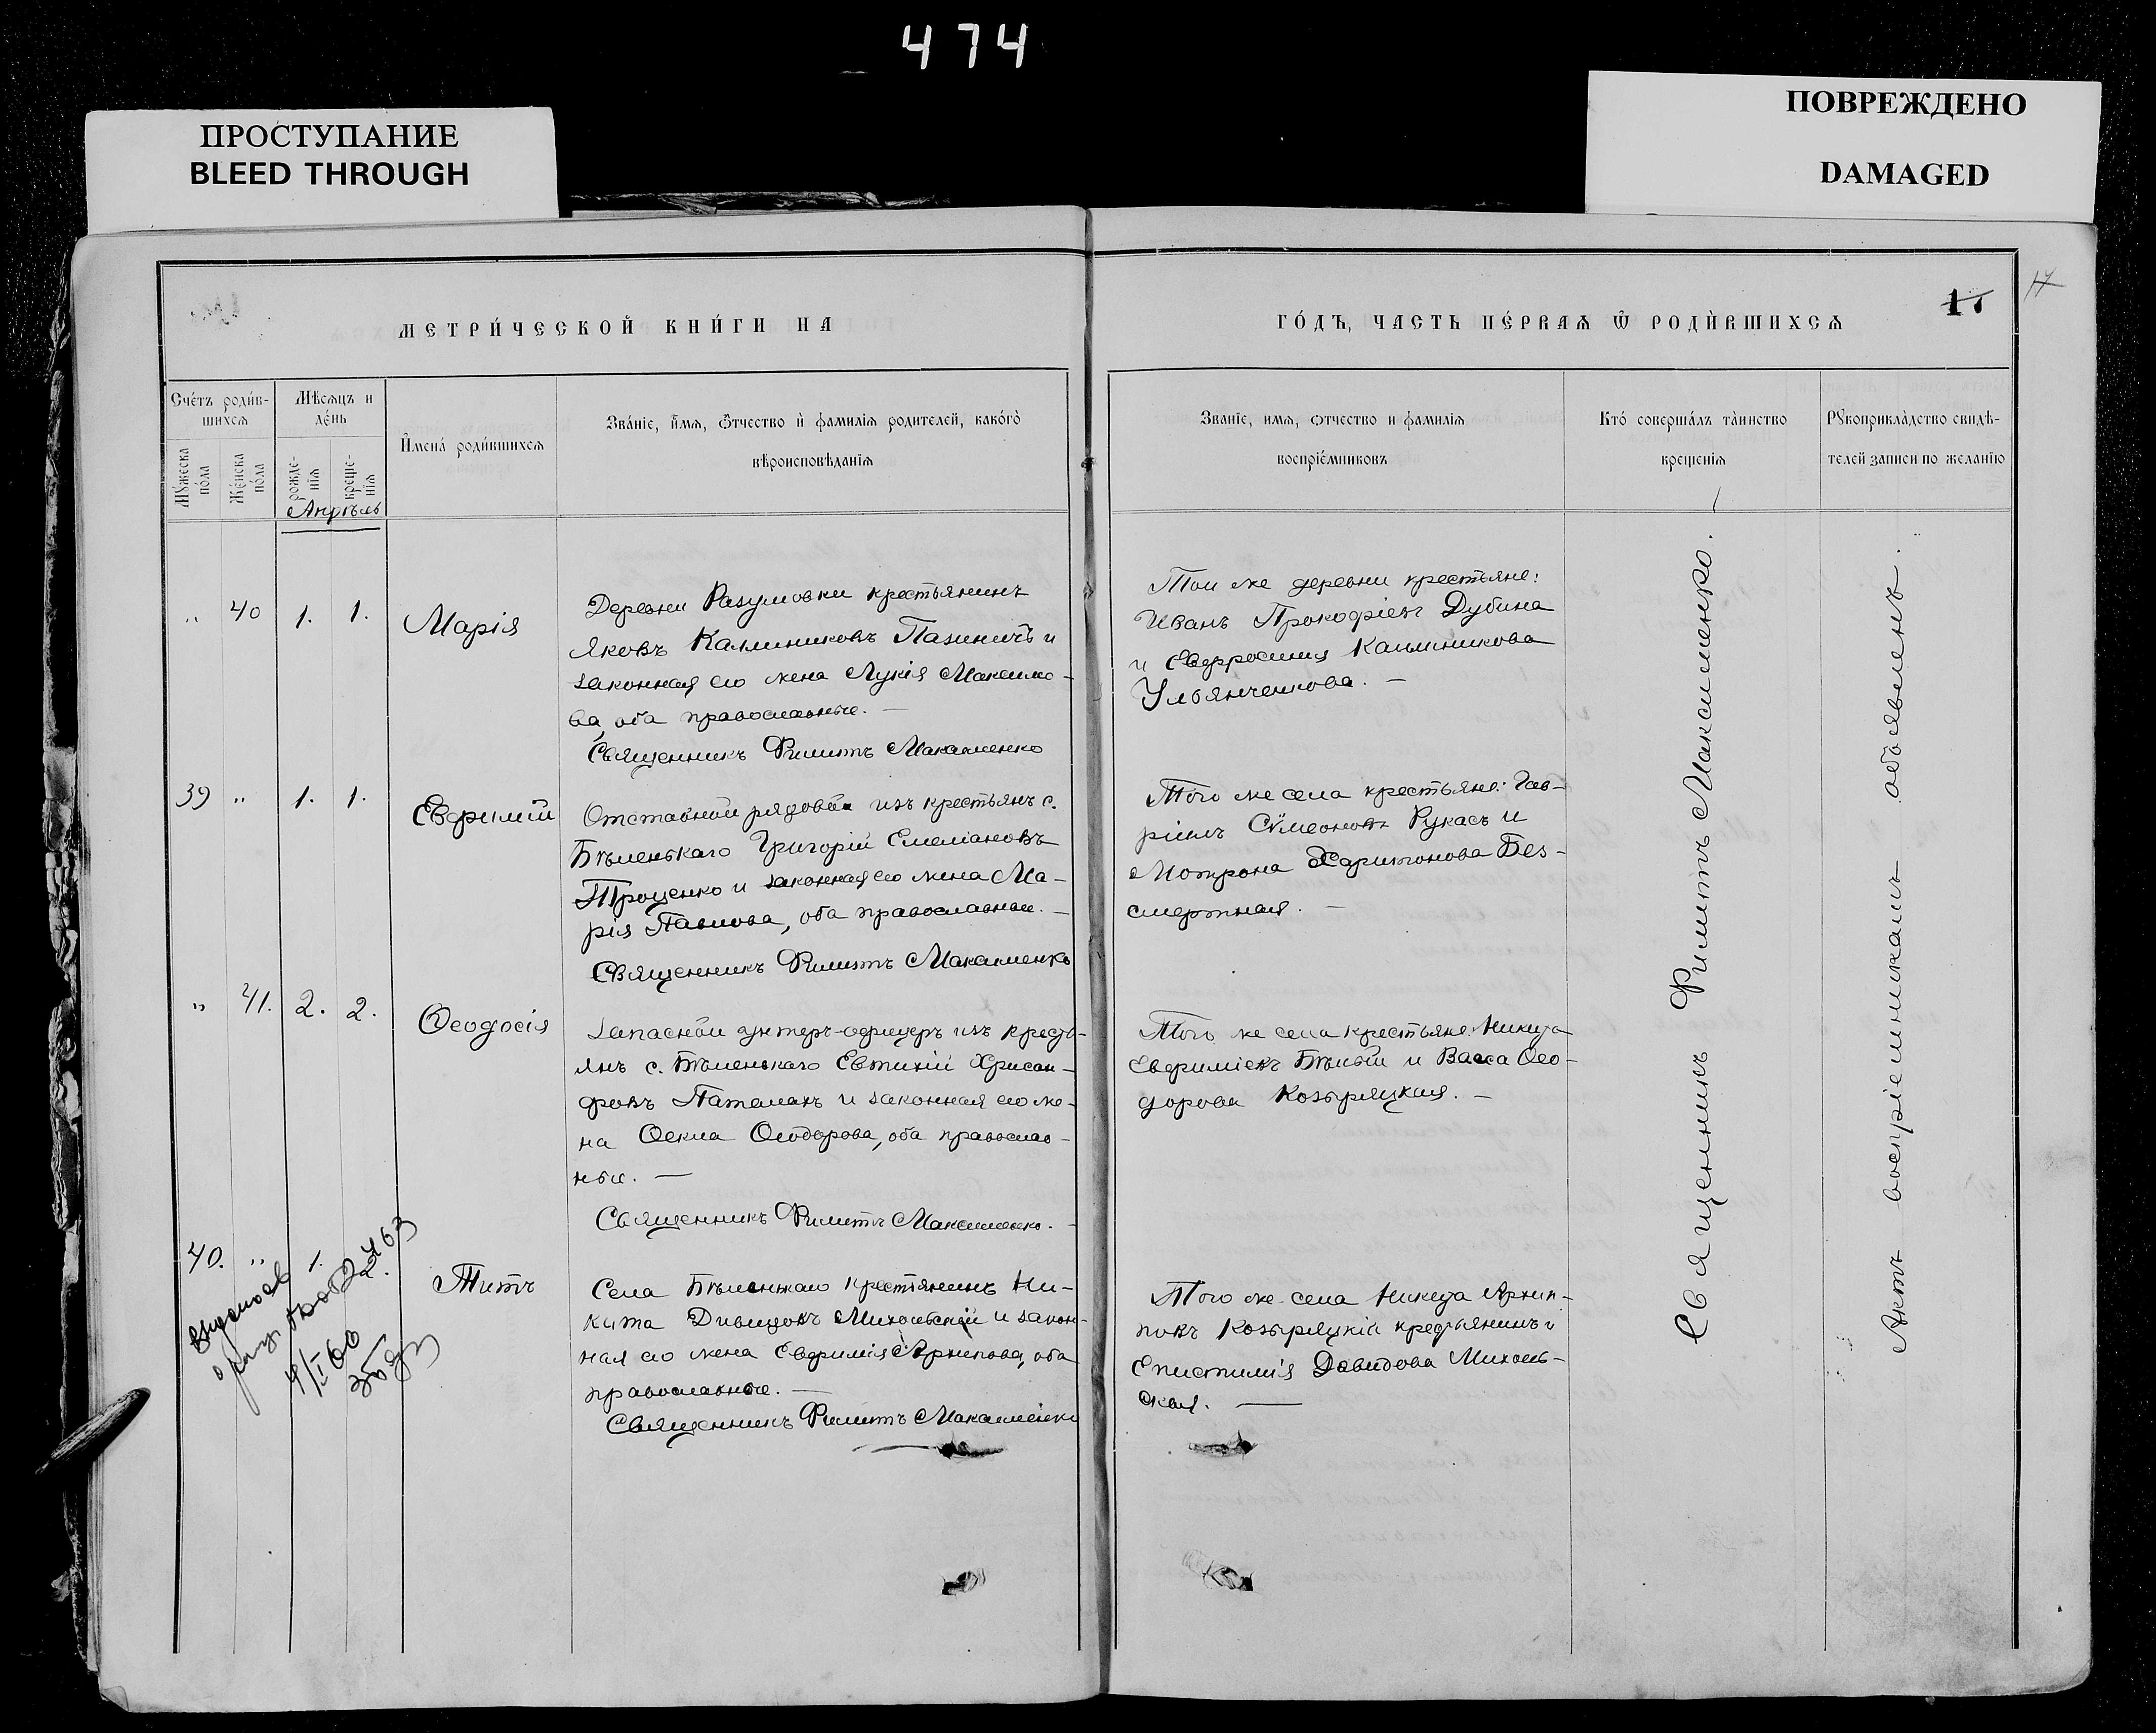 474
ПРОСТУПАНИЕ
BLEED THROUGH
ПОВРЕЖДЕНО
DAMAGED
МЕТРИ́ЧЕСКОЙ КНИ́ГИ НА
ГО́ДЪ, ЧАСТЬ ПЕ́РВАѦ Ѿ РОДИ́ВШИХСѦ
17
Сче́тъ роди́в-
шихсѧ
Мѣсѧцъ и
де́нь
Мꙋжеска
по́ла
Же́нска
по́ла
рожде-
нїѧ
креще-
нїѧ
И҆мена́ роди́вшихсѧ
Зва́нїе, и҆́мѧ, ѻ҆́тчество и҆ фамилїѧ родителей, како́гѡ
вѣроисповѣданїѧ
Званїе, имѧ, ѻтчество и фамилїѧ
воспрїе́мниковъ
Кто́ соверша́лъ та́инство
крещенїѧ
Рꙋкоприкла́дство свидѣ-
телей записи по желанїю
Апрѣль
" 40 1. 1. Марія
Деревни Разумовки крестьянинъ
Яковъ Калиниковъ Пазиничъ и
законная его жена Лукія Максимо-
ва, оба православные. —
Священникъ Филиппъ Максименко
Той же деревни крестьяне:
Иванъ Прокофіевъ Дубина
и Евфросинія Калиникова
Ульянченкова. —
39 " 1. 1. Евфимій
Отставной рядовой изъ крестьянъ с.
Бѣленькаго Григорій Емеліановъ
Троценко и законная его жена Ма-
рія Павлова, оба православные. —
Священникъ Филиппъ Максименко
Того же села крестьяне: Гав-
ріилъ Сѵмеоновъ Рукасъ и
Мотрона Харитонова Без-
смертная. —
" 41. 2. 2. Ѳеодосія
Запасной унтеръ-офицеръ изъ кресть-
янъ с. Бѣленькаго Евтихій Хрисан-
фовъ Паталахъ и законная его же-
на Ѳекла Ѳеодорова, оба православ-
ные. —
Священникъ Филиппъ Максименко. -
Того же села крестьяне: Никита
Евфиміевъ Бѣлый и Васса Ѳео-
дорова Козыряцкая. —
40. " 1. 2. Титъ
Села Бѣленькаго крестьянинъ Ни-
кита Давидовъ Михальскій и закон-
ная его жена Евфимія Архипова, оба
православные. —
Священникъ Филиппъ Максименко
Того же села Никита Архип-
повъ Козыряцкій крестьянинъ и
Епистимія Давидова Михаль-
ская. —
Священникъ Филиппъ Максименко.
Актъ воспріемникамъ объявленъ.